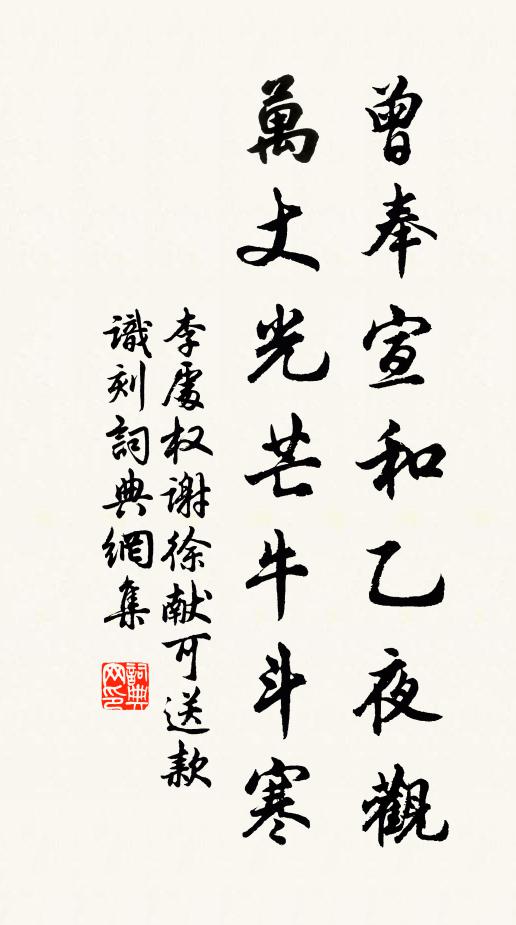 曾奉宣和乙夜觀
萬丈光芒牛斗寒
李處权谢徐献可送款
識刻詞典網集
詞典网印